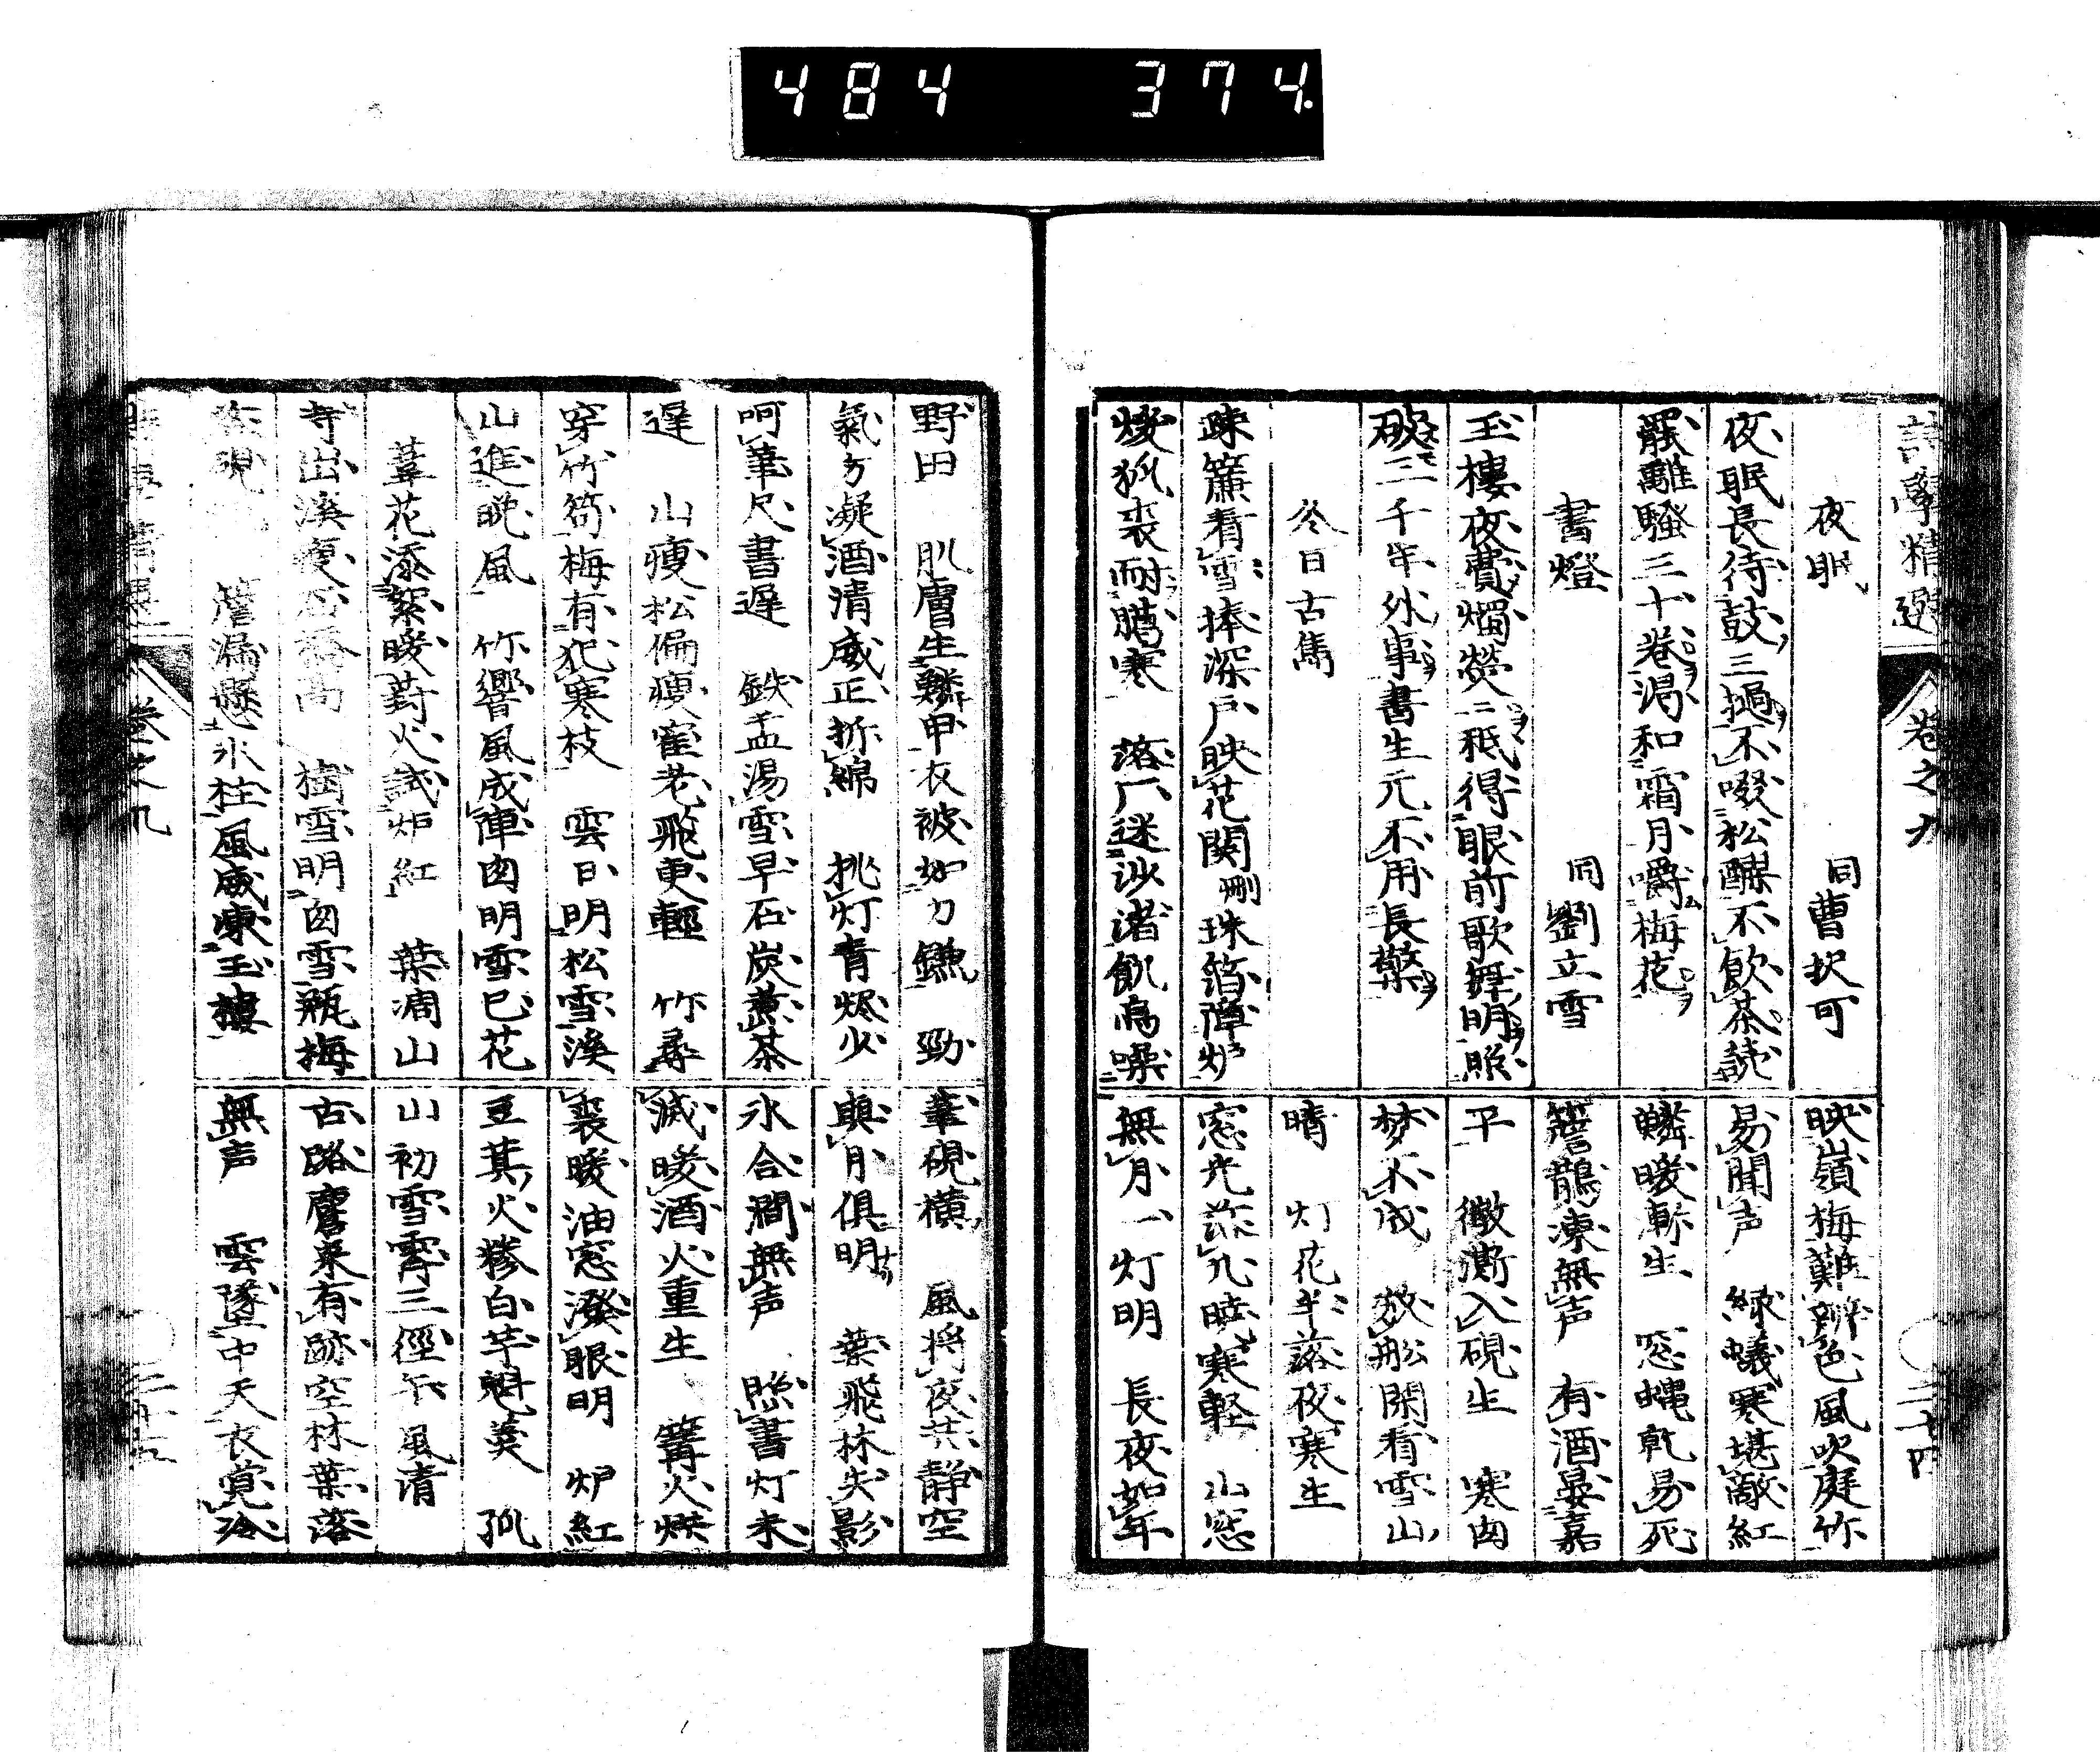 484 374.
詩學精選 卷之九 二十四
夜眠 同曹択可
夜眠長待鼓三撾不啜松醪不飲茶読
罷離騷三十卷渇和霜月嚼梅花
書燈 同劉立雪
玉樓夜費燭熒〻秪得眼前歌舞明照
破三千年外事書生元不用長檠
冬日古雋
疎簾看雪捧深戸映花関 珠箔障炉
煖狐裘耐臈寒 落 迷沙渚飢烏噪
映嶺梅難辨色風吹庭竹
易聞声 緑蟻寒堪敵紅
鱗暖漸生 窓蠅乾易死
簷鵲凍無声 有酒晏嘉
平 微澌入硯生 寒囱
梦不成 放舩閑看雪山
晴 灯花半落夜寒生
窓光 几暁寒軽 山窓
無月一灯明 長夜如年
野田 肌膚生鱗甲衣被如刀鎌 勁
氣方凝酒清威正折綿 挑灯青燼火
呵筆尺書遅 鉄盂湯雪早石炭煮茶
遅 山瘦松偏瘦 老飛更輕 竹尋
穿竹筍梅有犯寒枝 雲日明松雪溪
山進晩風 竹響風成陣囱明雪已花
葦花添絮暖葑火試炉紅 葉凋山
寺出溪瘦石橋高 樹雪明囱雪瓶梅
硯 簷漏懸氷柱風威凍玉樓
筆硯横 風将夜共静空
與月倶明 葉飛林失影
氷合澗無声 照書灯未
滅暖酒火重生 篝火烘
裘暖油窓潑眼明 炉紅
豆萁火糝白芋魁羮 孤
山初雪霽三徑午風清
古路麕来有跡空林葉落
無声 雲墜中天衣覚冷
卷之九